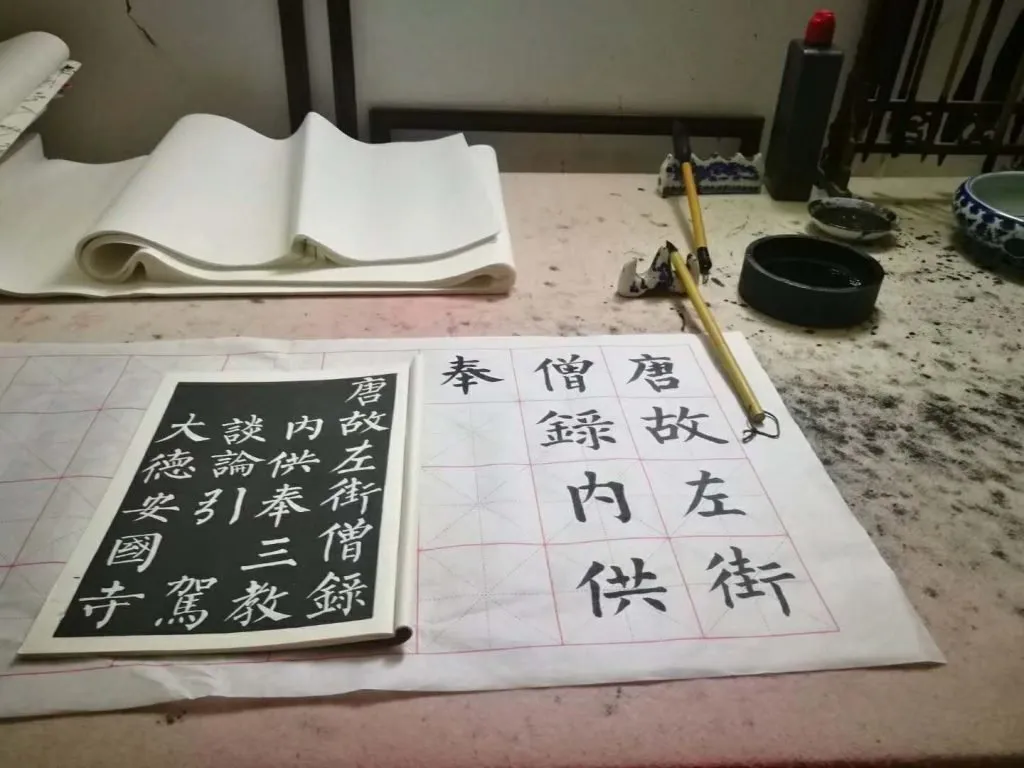 唐故左街
僧録内供
奉
唐故左街僧録
内供奉三教
談論引駕
大德安國寺